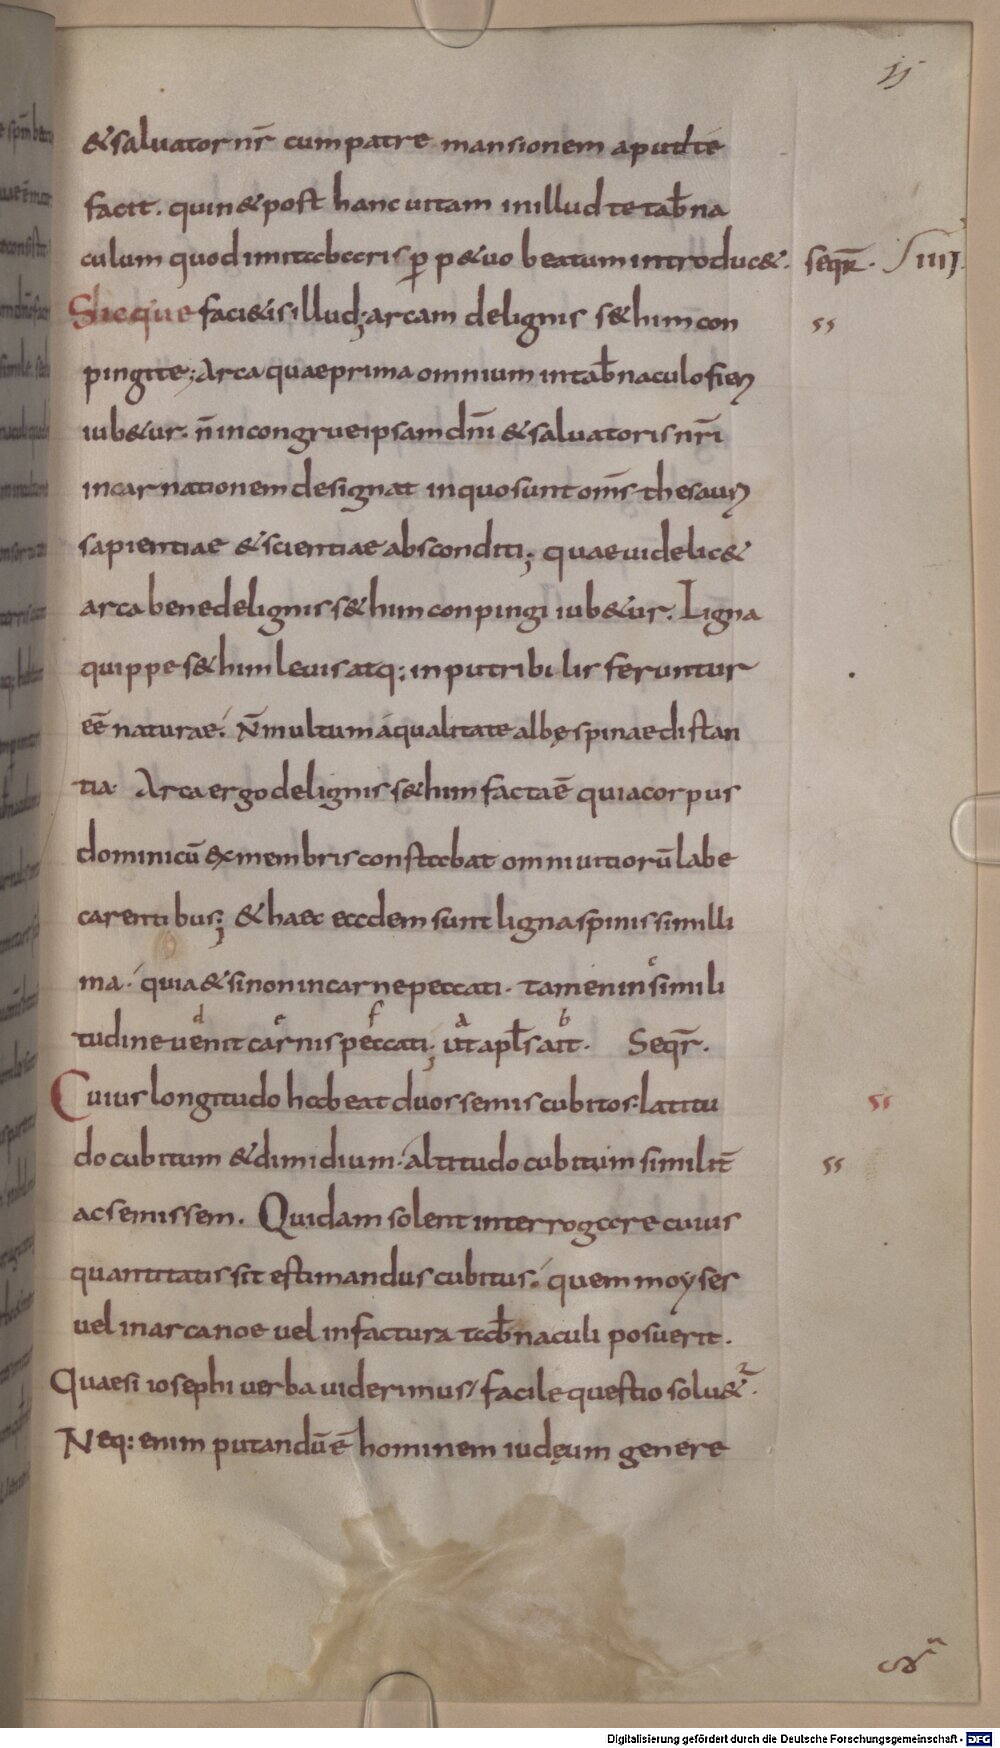 15
& saluator nr̄ cum patre mansionem apud te
facit. quin & post hanc uitam in illud te tab̄na
culum quod imitaberis ꝑ p&uo beatum introduc&. seqr̄. IIII.
Sicque faci&is illud; arcam de lignis s&him con
pingite; Arca quae prima omnium in tab̄naculo fieri
iub&ur. n̄ incongrue ipsam dn̄i & saluatoris nr̄i
incarnationem designat in quo sunt om̄s thesauri
sapientiae & scientiae absconditi; quae uidelic&
arca bene de lignis s&him conpingi iub&ur. Ligna
quippe s&him leuis atq; inputribilis feruntur
eē naturae. N̄ multum a qualitate albę spinae distan
tia. Arca ergo de lignis s&him facta ē quia corpus
dominicū ex membris constabat omni uitiorū labe
carentibus; & haec eadem sunt ligna spinis simili
ma. quia & si non in carne peccati. tamen in simili
tudine uenit carnis peccati; ut apls̄ ait. Seqr̄.
Cuius longitudo habeat duos semis cubitos. latitu
do cubitum & dimidium. altitudo cubitum similit̄
ac semissem. Quidam solent interrogare cuius
quantitatis sit estimandus cubitus. quem moyses
uel in arca noe uel in factura tab̄naculi posuerit.
Quae si iosephi uerba uiderimus facile questio solu&ur.
Neq; enim putandū ē hominem iudęum genere
Digitalisierung gefördert durch die Deutsche Forschungsgemeinschaft - DFG